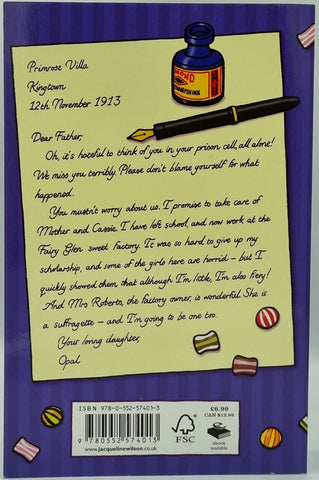 Primrose Villa
Kingtown
12th November 1913
Dear Father,
Oh, it's hateful to think of you in your prison cell, all alone!
We miss you terribly. Please don't blame yourself for what
happened.
You mustn't worry about us. I promise to take care of
Mother and Cassie. I have left school, and now work at the
Fairy Glen sweet factory. It was so hard to give up my
scholarship, and some of the girls here are horrid – but I
quickly showed them, that although I'm little, I'm also fiery!
And Mrs Roberts, the factory owner, is wonderful. She is
a suffragette – and I'm going to be one too.
Your loving daughter,
Opal
ISBN 978-0-552-57401-3
9 780552 574013
www.jacquelinewilson.co.uk
FSC
£6.99
CAN $12.99
ebook
available